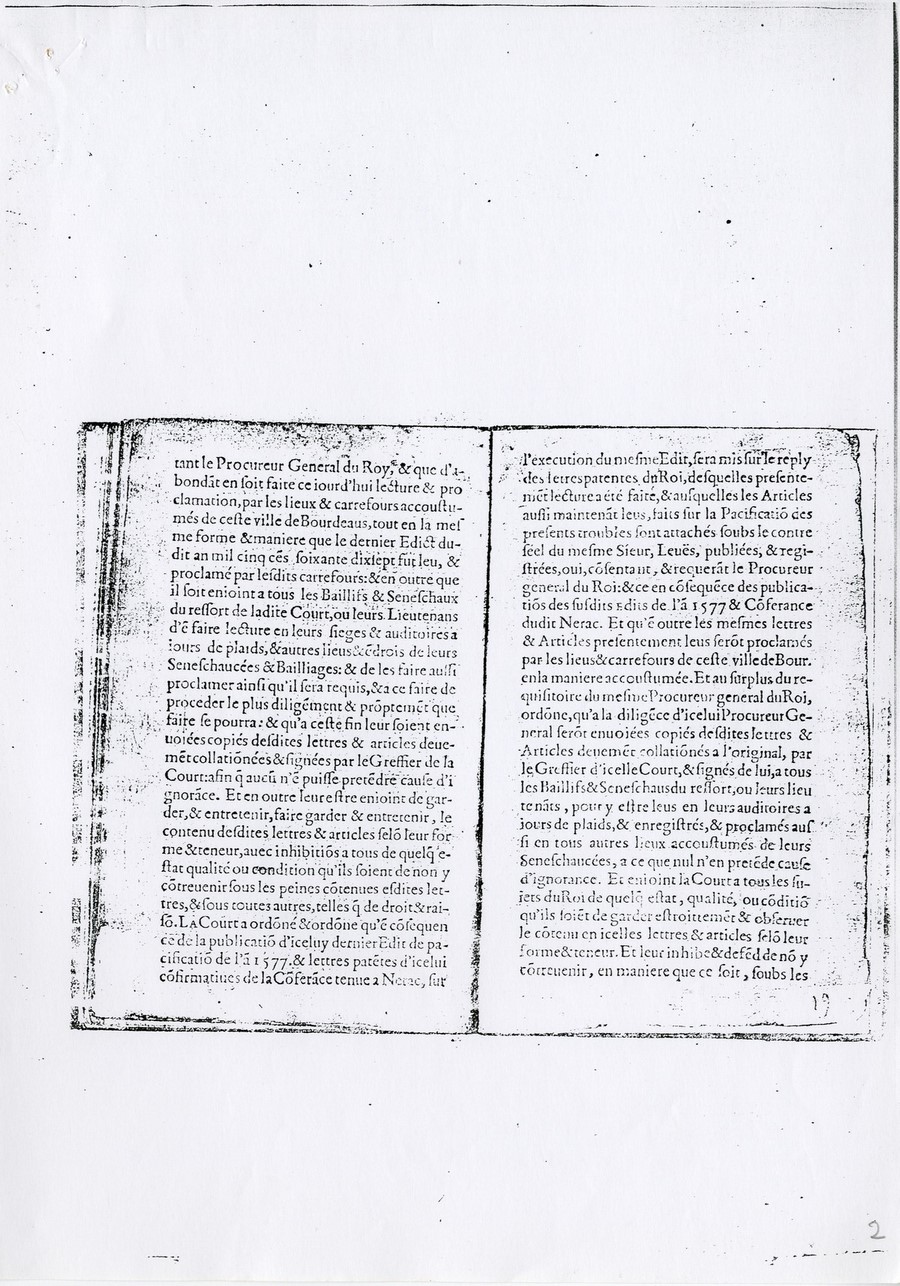 tant le Procureur General du Roy, & que d'a-
bondãt en ſoit faite ce iourd'hui lecture & pro
clamation, par les lieux & carrefours accouſtu-
més de ceſte ville de Bourdeaus, tout en la meſ
me forme & maniere que le dernier Edict du-
dit an mil cinq cẽs ſoixante dixſept fut leu, &
proclamé par leſdits carrefours: & en outre que
il ſoit enioint a tous les Baillifs & Seneſchaux
du reſſort de ladite Court, ou leurs Lieutenans
d'ẽ faire lecture en leurs ſieges & auditoires a
iours de plaids, & autres lieus & ẽdrois de leurs
Seneſchaucées & Bailliages: & de les faire auſſi
proclamer ainſi qu'il ſera requis, & a ce faire de
proceder le plus diligẽment & prõptemẽt que
faire ſe pourra: & qu'a ceſte fin leur ſoient en-
uoiées copiés deſdites lettres & articles deue-
mẽt collationées & ſignées par le Greffier de la
Court: afin q̃ aucũ n'ẽ puiſſe pretẽdre cauſe d'i
gnorãce. Et en outre leur eſtre enioint de gar-
der, & entretenir, faire garder & entretenir, le
contenu deſdites lettres & articles ſelõ leur for
me & teneur, auec inhibitiõs a tous de quelq̃ e-
ſtat qualité ou condition qu'ils ſoient de non y
cõtreuenir ſous les peines cõtenues eſdites let-
tres, & ſous toutes autres, telles q̃ de droit & rai-
ſõ. LA Court a ordõné & ordõne qu'ẽ cõſequen
ce de la publicatiõ d'iceluy dernier Edit de pa-
cificatiõ de l'ã 1577. & lettres patẽtes d'icelui
cõfirmatiues de la Cõferãce tenue a Nerac, ſur
l'execution du meſme Edit, ſera mis ſur le reply
des letres parentes du Roi, deſquelles preſente-
mẽt lecture a été faite, & auſquelles les Articles
auſſi maintenãt leus, faits ſur la Pacificatiõ des
preſents troubles ſont attachés ſoubs le contre
ſéel du meſme Sieur, Leuës, publiées, & regi-
ſtrées, oui, cõſentant, & requerãt le Procureur
general du Roi: & ce en cõſequẽce des publica-
tiõs des ſuſdits Edits de l'ã 1577 & Cõferance
dudit Nerac. Et qu'ẽ outre les meſmes lettres
& Articles preſentement leus ſerõt proclamés
par les lieus & carrefours de ceſte ville de Bour.
en la maniere accouſtumée. Et au ſurplus du re-
quiſitoire du meſme Procureur general du Roi,
ordõne, qu'a la diligẽce d'icelui Procureur Ge-
neral ſerõt enuoiées copiés deſdites lettres &
Articles deuemẽt collationés a l'original, par
le Greffier d'icelle Court, & ſignés de lui, a tous
les Baillifs & Seneſchaus du reſſort, ou leurs lieu
tenãts, pour y eſtre leus en leurs auditoires a
jours de plaids, & enregiſtrés, & proclamés auſ
ſi en tous autres lieux accouſtumés de leurs
Seneſchaucées, a ce que nul n'en pretẽde cauſe
d'ignorance. Et enioint la Court a tous les ſu-
jets du Roi de quelq̃ eſtat, qualité, ou cõditiõ
qu'ils ſoiẽt de garder eſtroittemẽt & obſeruer
le cõtenu en icelles lettres & articles ſelõ leur
forme & teneur. Et leur inhibe & defẽd de nõ y
cõtreuenir, en maniere que ce ſoit, ſoubs les
2